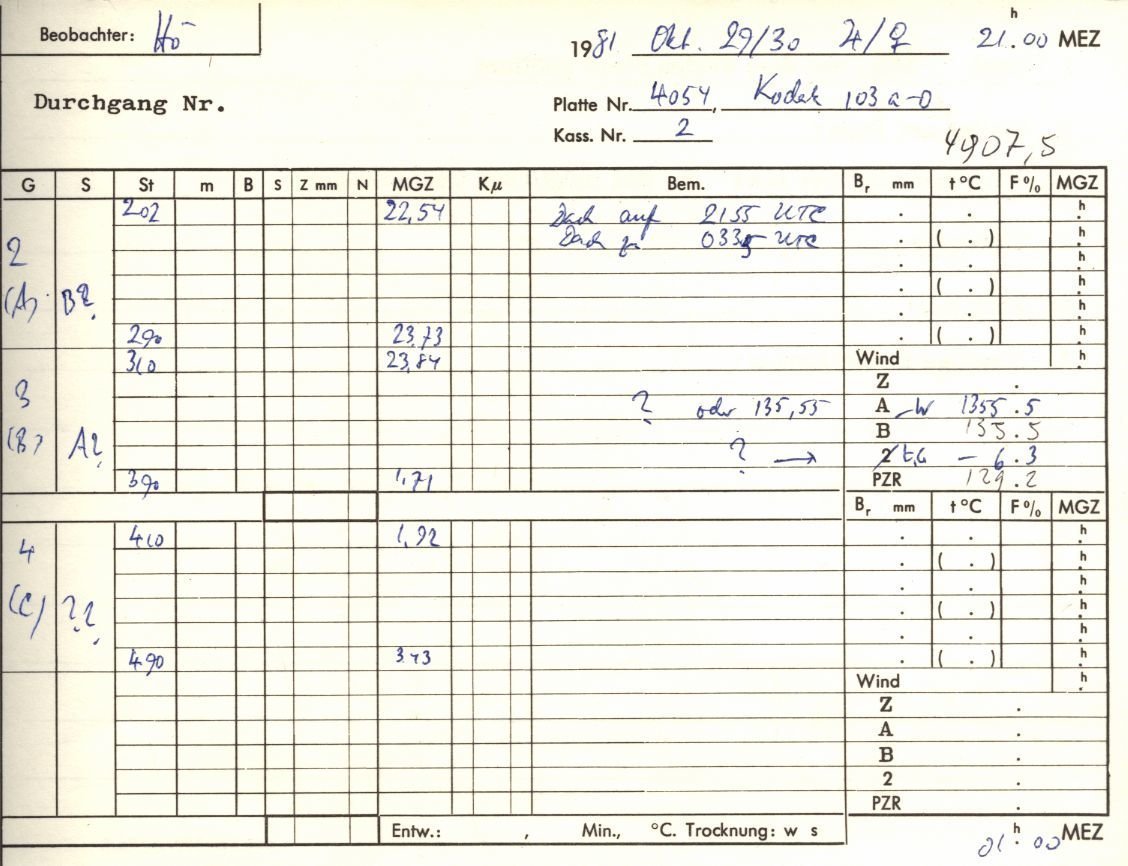 Beobachter: Hö
1981 Okt. 29/30 ♃/♀ 21.00 h MEZ
Durchgang Nr.
Platte Nr. 4054, Kodak 103 a-O
Kass. Nr. 2
4907,5
G S St m B S Z mm N MGZ Kμ Bem. Br mm t°C F% MGZ
202 22,54 Dach auf 2155 UTC . . h
Dach zu 0335 UTC . ( . ) h
2 . . h
(A) B? . ( . ) h
. . h
290 23,73 . ( . ) h
310 23,84 Wind h
Z .
3 ? oder 135,55 A 1355.5
(B) B 135.5
A? ? → 2 - 6.3
390 1,71 PZR 129.2
Br mm t°C F% MGZ
410 1,92 . . h
4 . ( . ) h
. . h
(C) ?? . ( . ) h
. . h
490 3.43 . ( . ) h
Wind h
Z .
A .
B .
2 .
PZR .
Entw.: , Min., °C. Trocknung: w s
01 h 00 MEZ